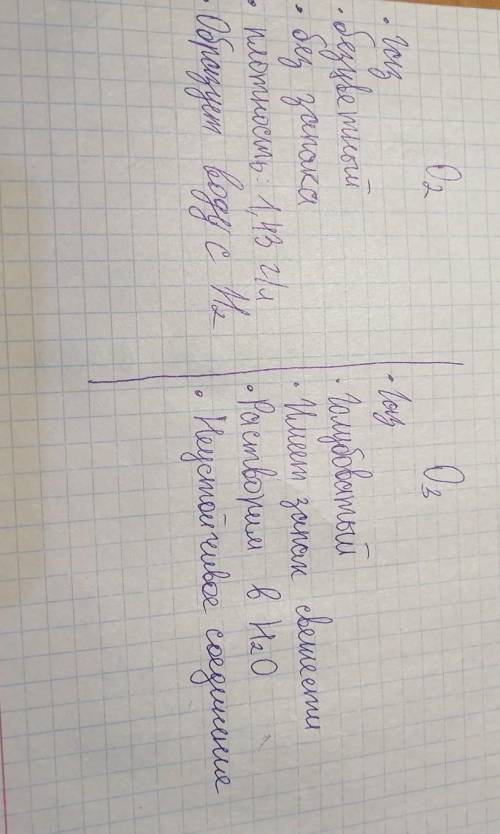 O₂
• Газ
• безцветный
• без запаха
• плотность: 1,43 г/л
• Образует воду с H₂
O₃
• Газ
• Голубоватый
• Имеет запах свежести
• Растворим в H₂O
• Неустойчивое соединение